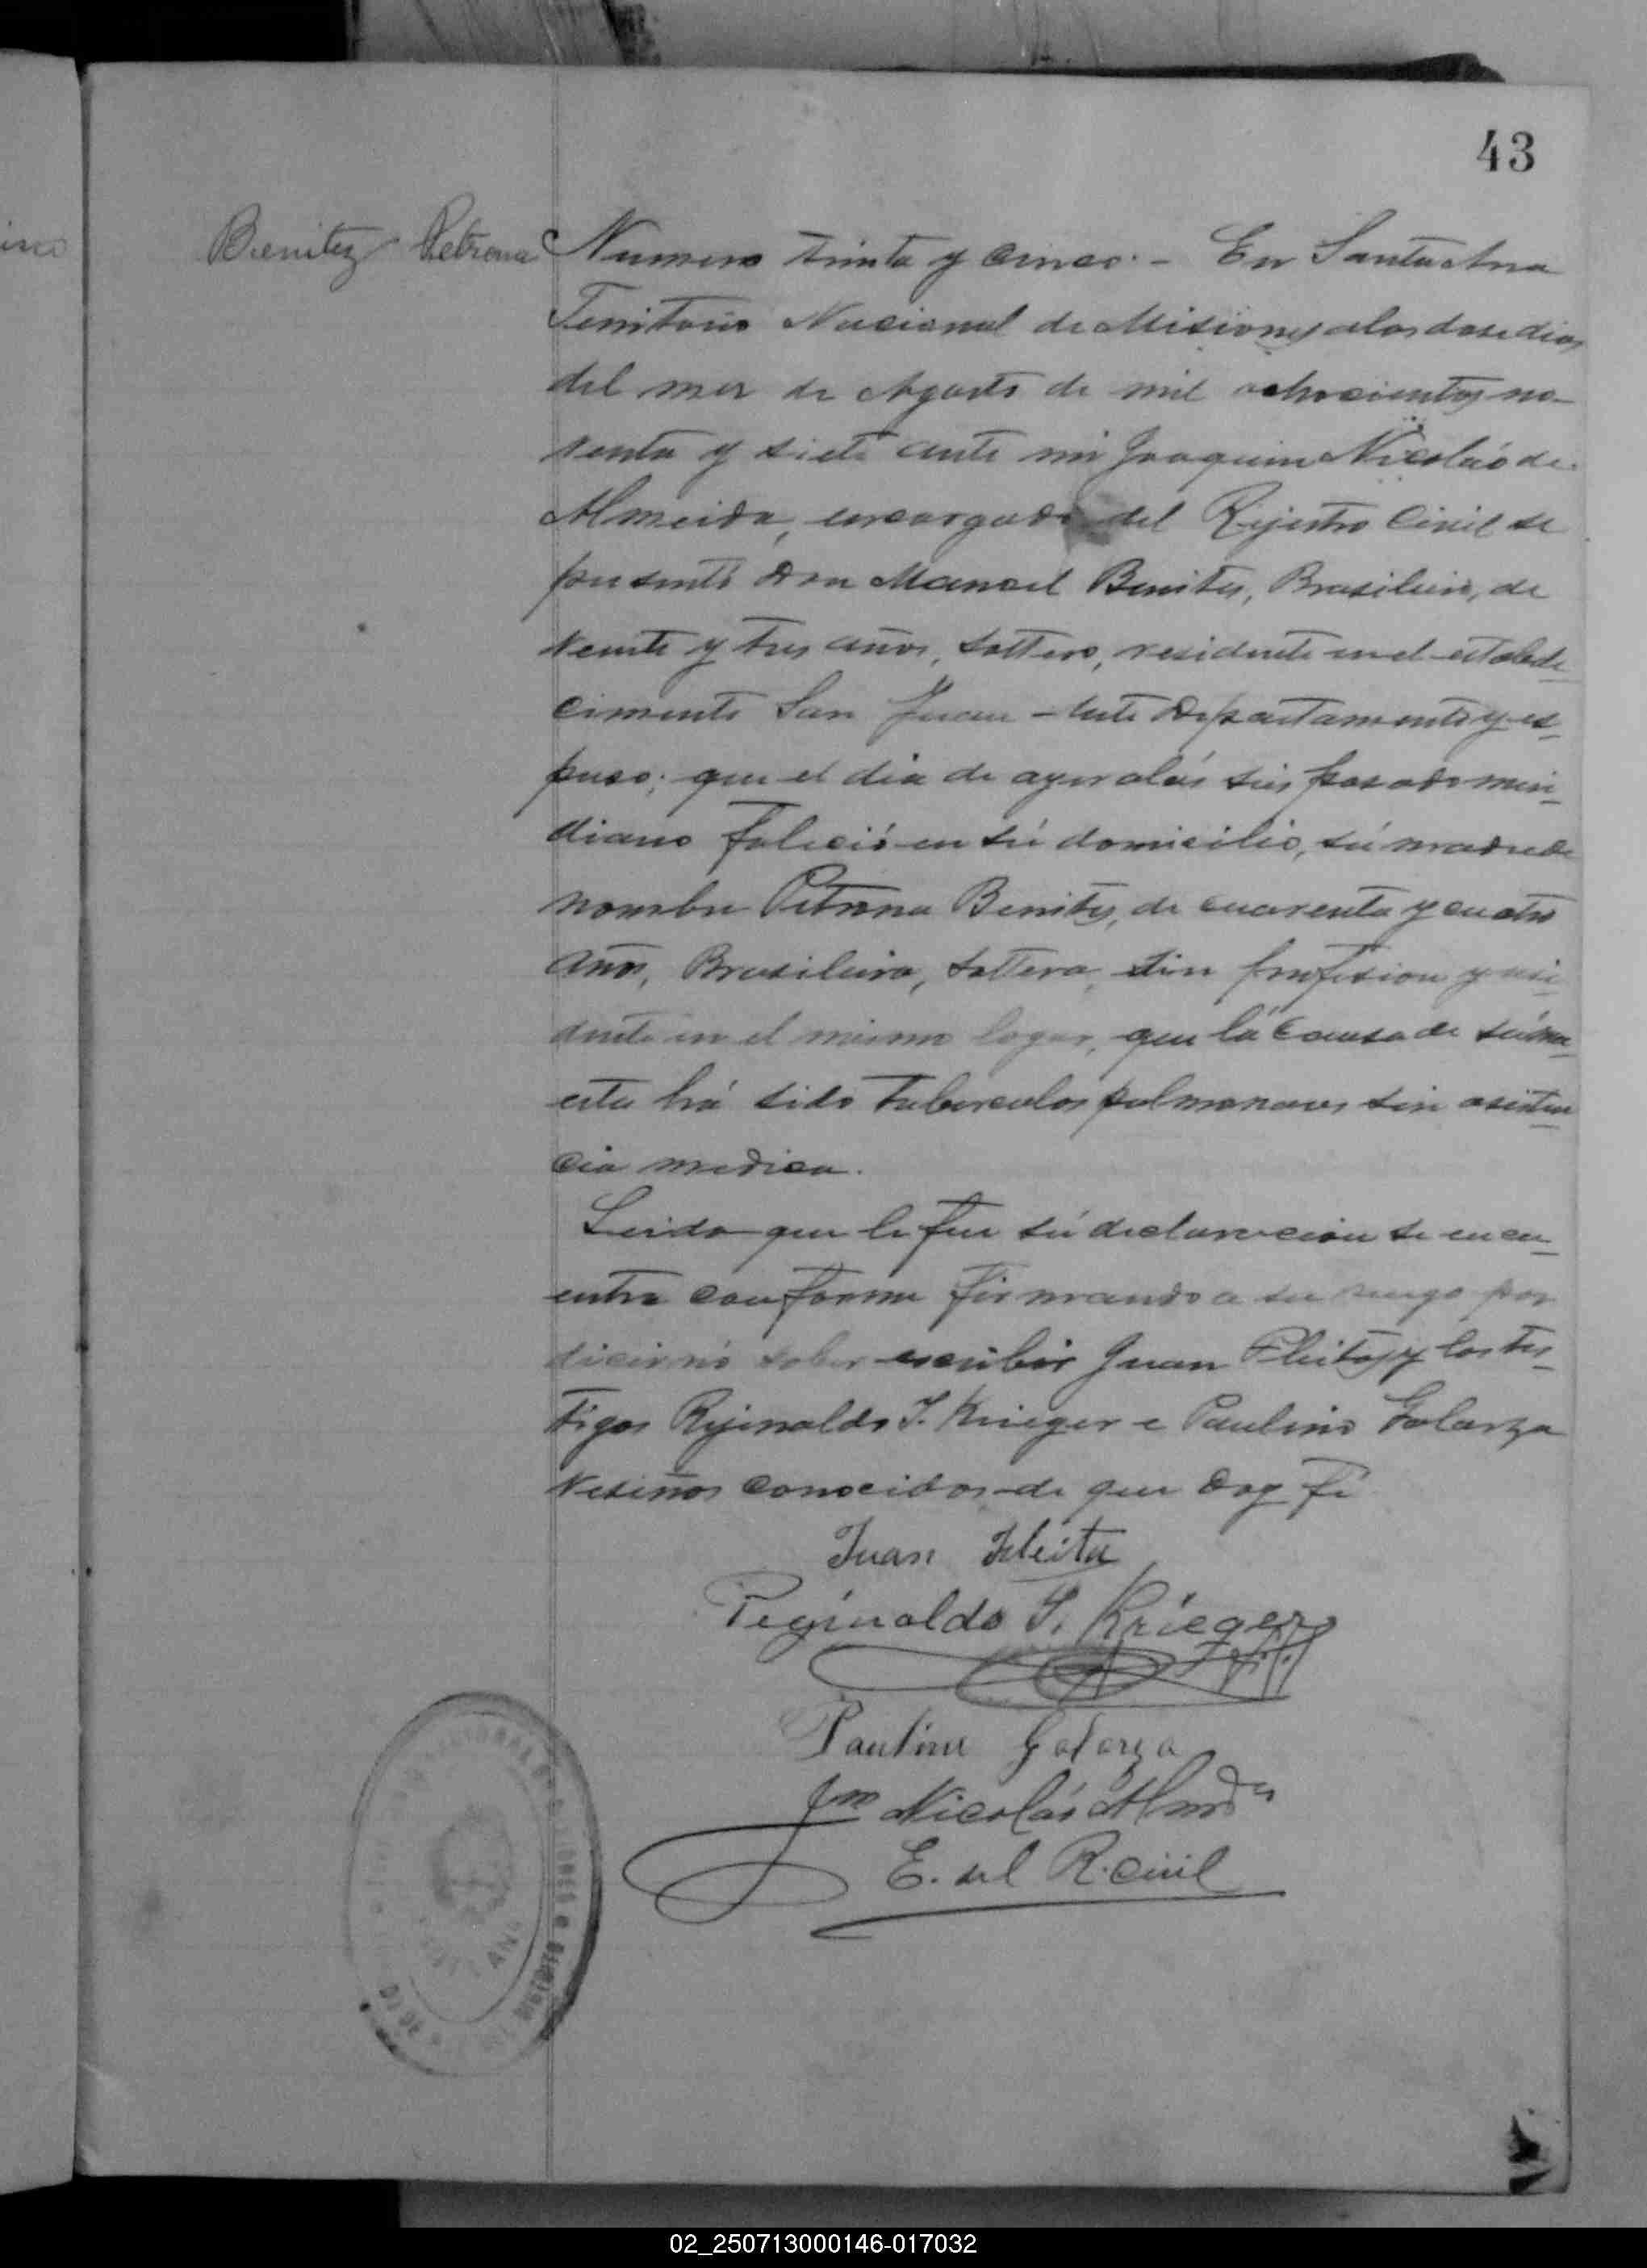 43
Benitez Petrona
Numero trinta y cinco. - En Santa Ana
Territorio Nacional de Misiones a los dose dias
del mes de Agosto de mil ochocientos no-
venta y siete ante mi Joaquin Nicoláo de
Almeida, encargado del Rejistro Civil se
presentó Don Manoel Benites, Brasileiro, de
veinte y tres años, soltero, residente en el estable-
cimento San Juan - deste Departamento y es-
puso; que el dia de ayer alás seis pasado meri-
diano faleció en sú domicilio, sú madre de
nombre Petrona Benites, de cuarenta y cuatro
años, Brasileira, soltera, sin profesion y resi-
dente en el mismo logar, que lá causa de sú mu-
erte há sido tuberculos pulmonares sin asisten-
cia medica.
Leido que le fue sú declaracion se encu-
entra conforme firmando a su ruego por
dicir nó saber escribir Juan Fleitas y los tes-
tigos Rejinaldo J. Krieger e Paulino Galarza
vesinos conocidos de que doy fé
Juan Fleita
Reginaldo J. Krieger
Paulino Galarza
Jm Nicolás Almda
E. del R. Civil
02_250713000146-017032